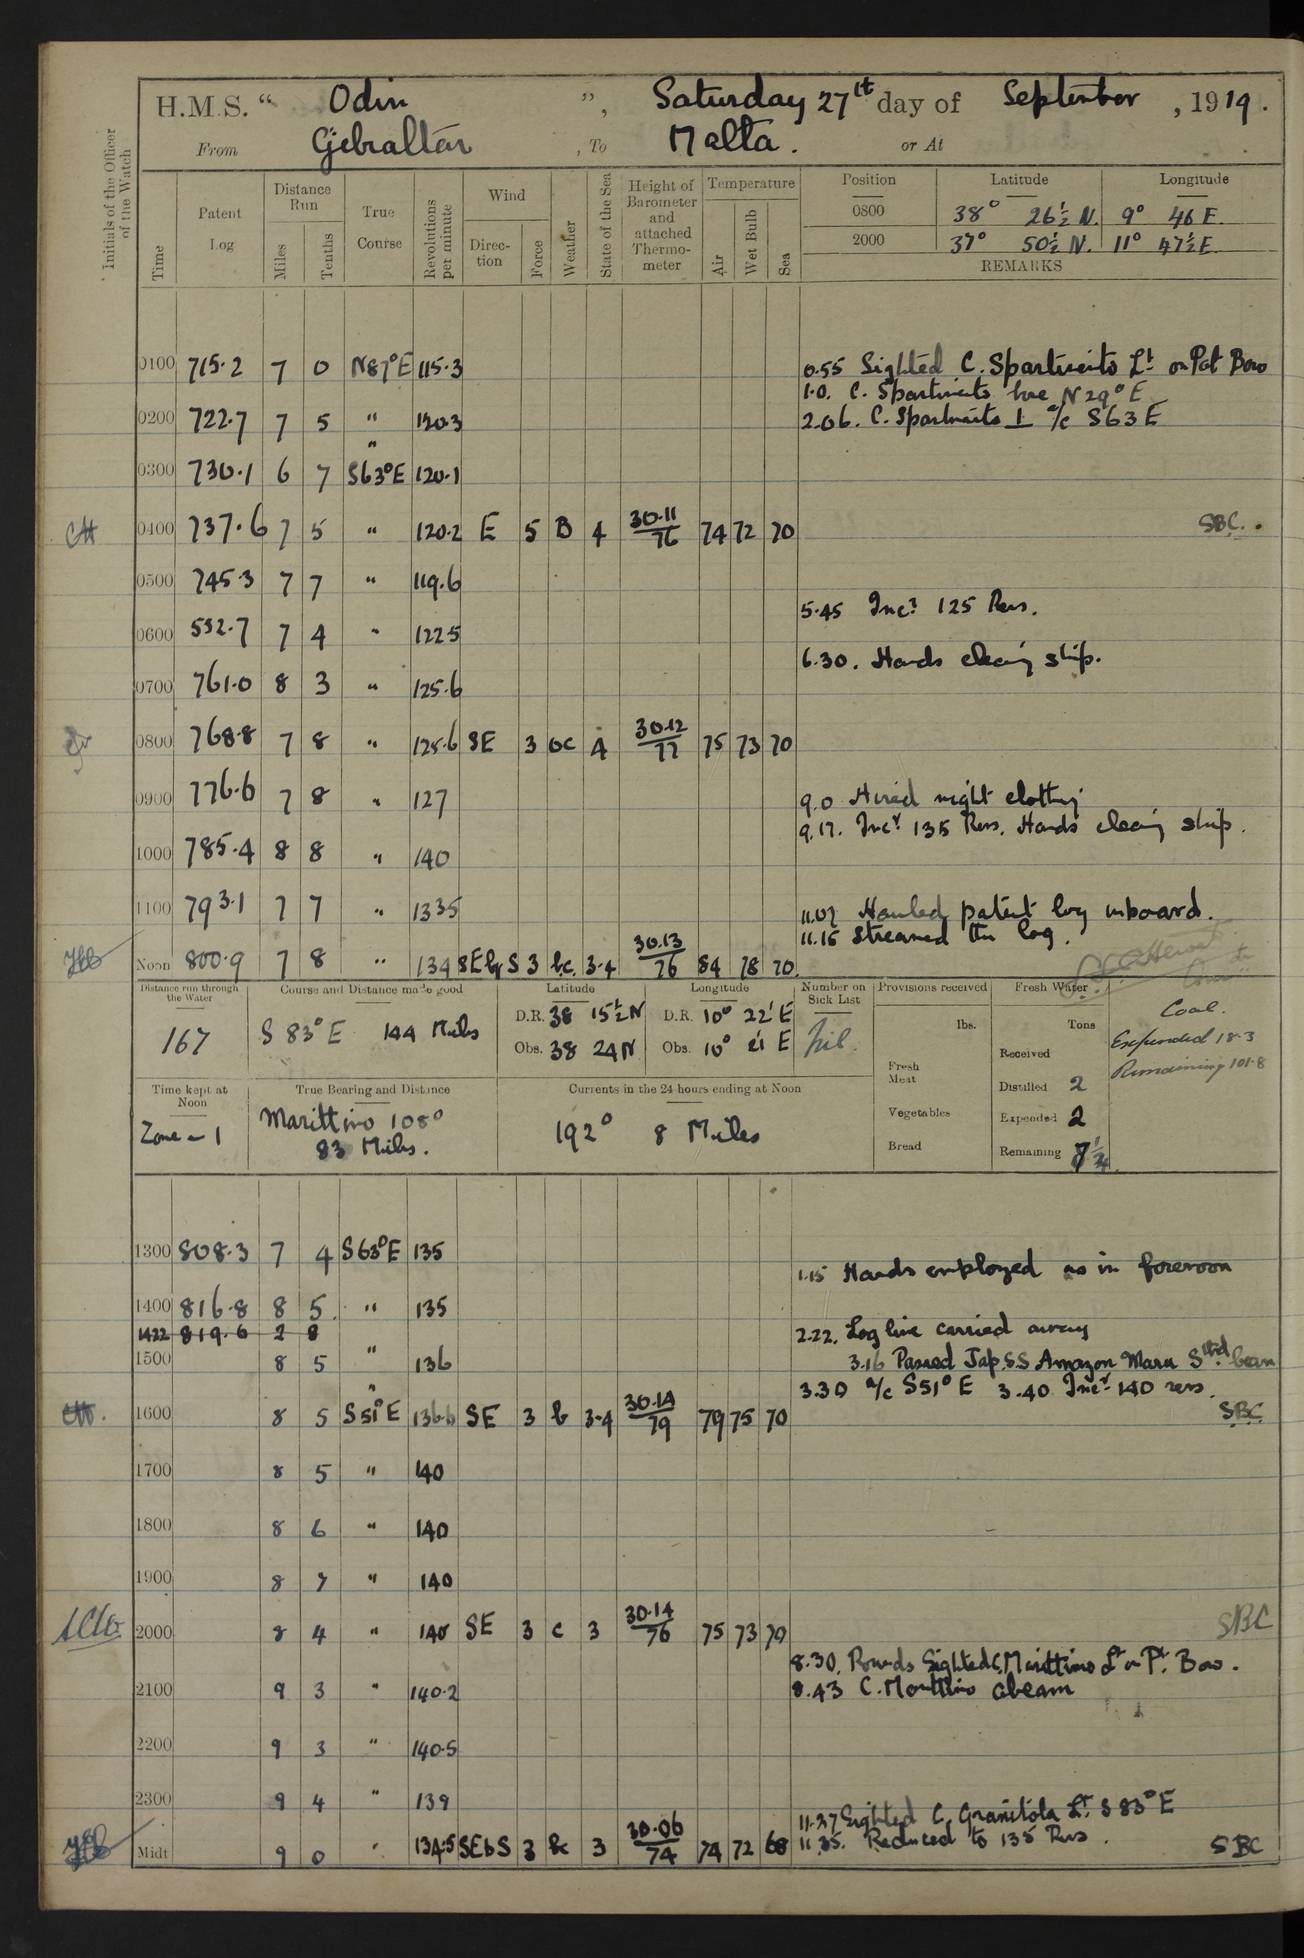 H.M.S. “ Odin ”, Saturday 27th day of September , 1919.
From Gibraltar , To Malta . or At
Initials of the Officer of the Watch
Time
Patent Log
Distance Run
Miles
Tenths
True Course
Revolutions per minute
Wind
Direc-tion
Force
Weather
State of the Sea
Height of Barometer and attached Thermo-meter
Temperature
Air
Wet Bulb
Sea
Position Latitude Longitude
0800 38° 26½ N. 9° 46 E
2000 37° 50½ N. 11° 47½ E.
REMARKS
0100 715.2 7 0 N87°E 115.3
0.55 Sighted C. Spartivento Lt on Pot Bow
1.0. C. Spartivento bore N 29° E
0200 722.7 7 5 " 120.3
2.06. C. Spartivento ⊥ a/c S63E
"
0300 730.1 6 7 S63°E 120.1
0400 737.6 7 5 " 120.2 E 5 B 4 30.11/76 74 72 70 SBC.
0500 745.3 7 7 " 119.6
5.45 Incd 125 Revs.
0600 552.7 7 4 " 122.5
6.30. Hands cleang ship.
0700 761.0 8 3 " 125.6
0800 768.8 7 8 " 125.6 SE 3 bc 4 30.12/77 75 73 70
0900 776.6 7 8 " 127
9.0 Aired night clothing
9.17. Incd 135 Revs. Hands cleang ship.
1000 785.4 8 8 " 140
1100 793.1 7 7 " 133.5
11.07 Hauled patent log inboard.
11.15 Streamed the log.
Noon 800.9 7 8 " 134 SEbyS 3 b.c. 3-4 30.13/76 84 78 70.
Distance run through the Water
167
Course and Distance made good
S 83° E 144 Miles
Latitude
D.R. 38 15½ N
Obs. 38 24 N
Longitude
D.R. 10° 22' E
Obs. 10° 21 E
Number on Sick List
Nil.
Provisions received
lbs.
Fresh Meat
Vegetables
Bread
Fresh Water
Tons
Received
Distilled 2
Expended 2
Remaining
Coal.
Expended 18.3
Remaining 101.8
Time kept at Noon
Zone - 1
True Bearing and Distance
Marittimo 108°
83 Miles.
Currents in the 24 hours ending at Noon
192° 8 Miles
1300 808.3 7 4 S63°E 135
1.15 Hands employed as in forenoon
1400 816.8 8 5. " 135
1422 819.6 2 8
2.22. Log line carried away
1500 8 5 " 136
3.16 Passed Jap. S.S Amazon Maru Stbd beam
"
3.30 a/c S51° E 3.40 Incd 140 revs.
1600 8 5 S51°E 136.6 SE 3 b 3-4 30.14/79 79 75 70 SBC
1700 8 5 " 140
1800 8 6 " 140
1900 8 7 " 140
2000 8 4 " 140 SE 3 c 3 30.14/76 75 73 70 SBC
8.30. Rounds Sighted C. Marittimo Lt on Pt. Bow.
2100 9 3 " 140.2
8.43 C. Marittimo abeam
2200 9 3 " 140.5
2300 9 4 " 139
11.27 Sighted C. Granitola Lt. S 83° E
11.35. Reduced to 135 Revs.
Midt 9 0 " 134.5 SEbS 3 bc 3 30.06/74 74 72 68 SBC